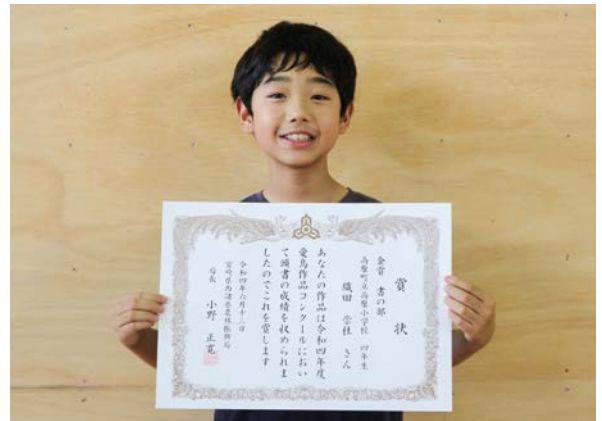 賞状
金賞 書の部
高原町立高原小学校 四年生
織田 学杜 さん
あなたの作品は令和四年度
愛鳥作品コンクールにおい
て頭書の成績を収められま
したのでこれを賞します
令和四年六月十三日
宮崎県西諸県農林振興局
局長 小野 正寛